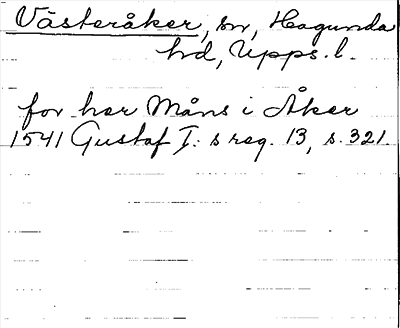 Västeråker, sn, Hagunda
hd, Upps. l.
for her Måns i Åker
1541 Gustaf I:s reg. 13, s. 321.